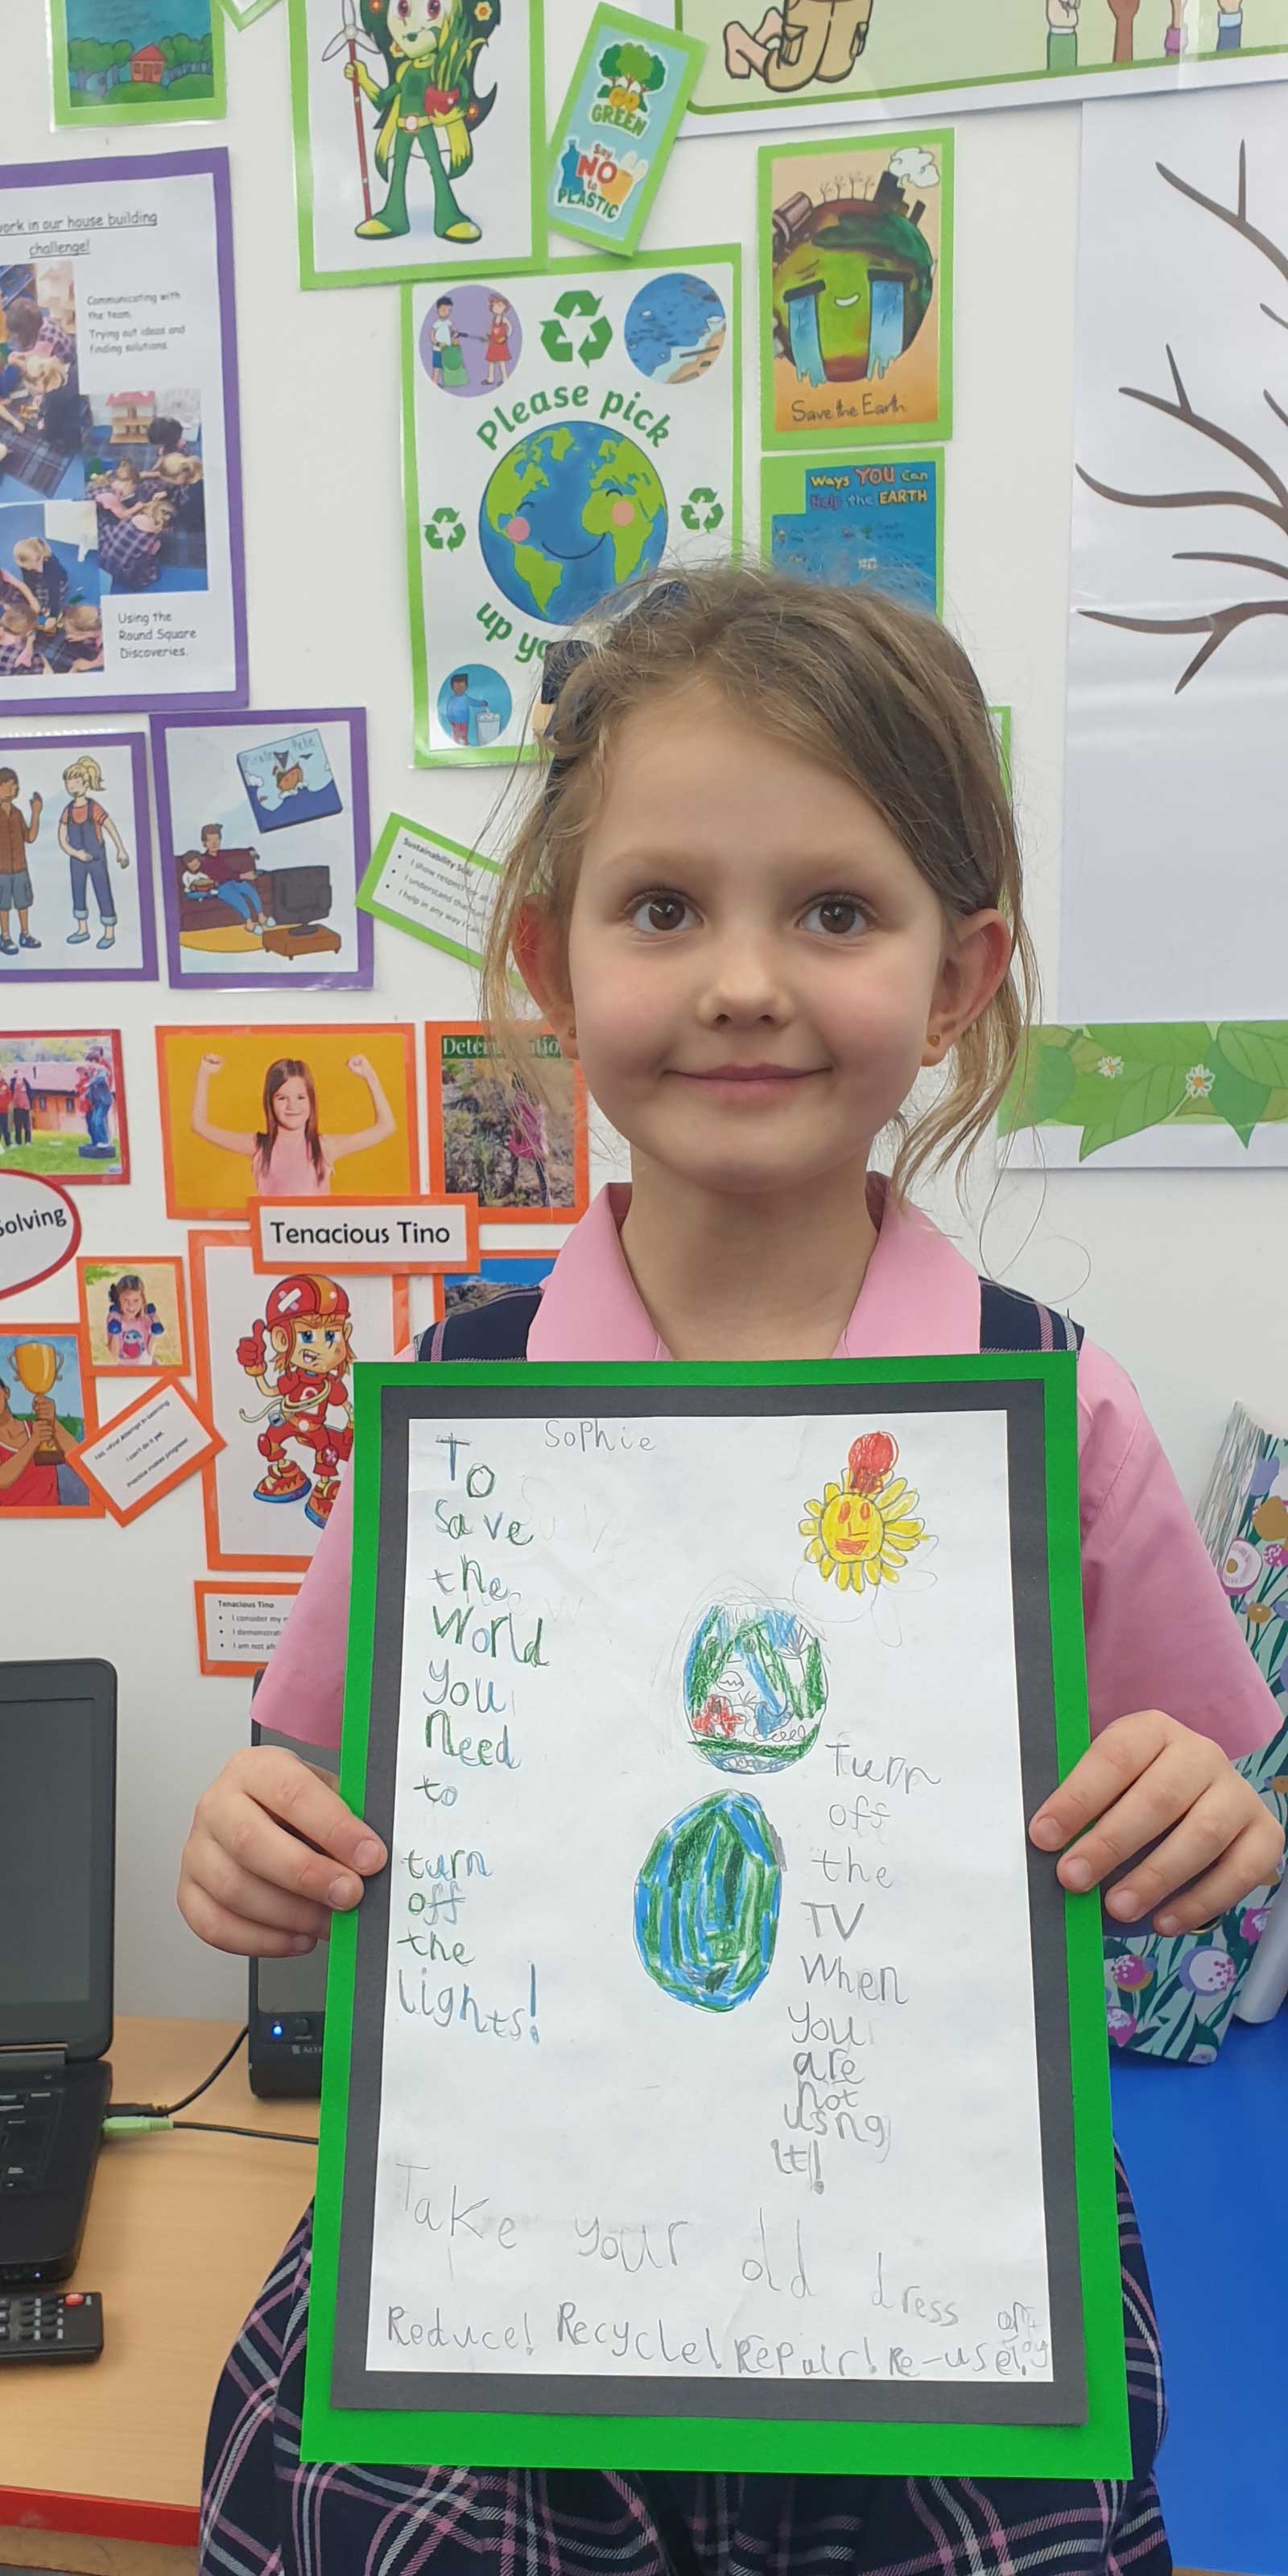 GO
GREEN
Say
NO
to
PLASTIC
work in our house building
challenge!
Communicating with
the team.
Trying out ideas and
finding solutions.
Using the
Round Square
Discoveries.
Please pick
up
Save the Earth
Ways YOU Can
Help the EARTH
Pirate Pete
Sustainability
I show respect for all
I understand that
I help in any way I can
Solving
Tenacious Tino
Practice makes progress!
Tenacious Tino
I consider my
I demonstrate
I am not
Sophie
To
Save
the
World
You
Need
to
turn
off
the
Lights!
Turn
off
the
TV
When
your
are
not
usng
it!
Take your old dress
Reduce! Recycle! Repair! Re-use!